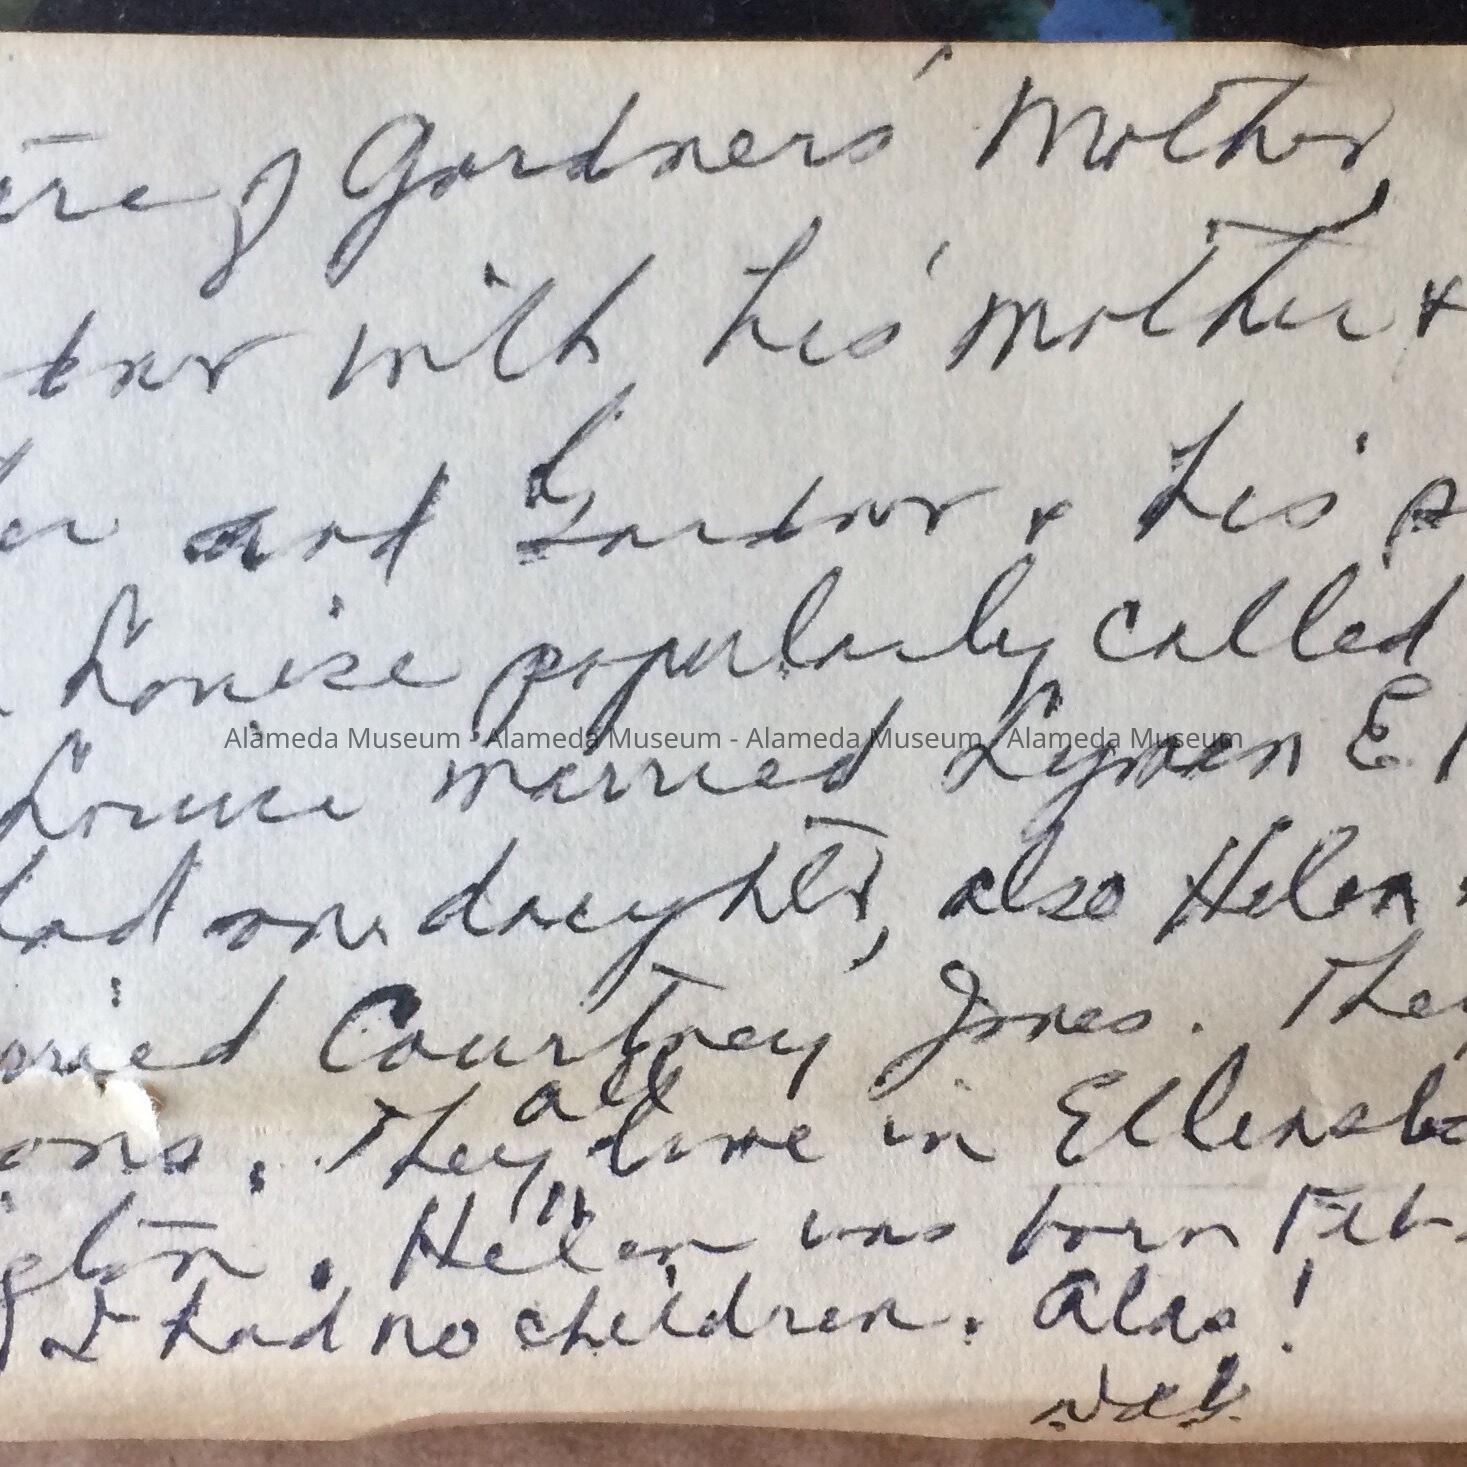 of Gardners' Mother,
with his mother &
and Gardner & his
Louise popularly called
Alameda Museum - Alameda Museum - Alameda Museum - Alameda Museum
Louise married Lyman E
had one daughter, also Helen
Courtney Jones. They
ons. They all live in Ellensb
gton. Helen was born Feb
I had no children. Alas!